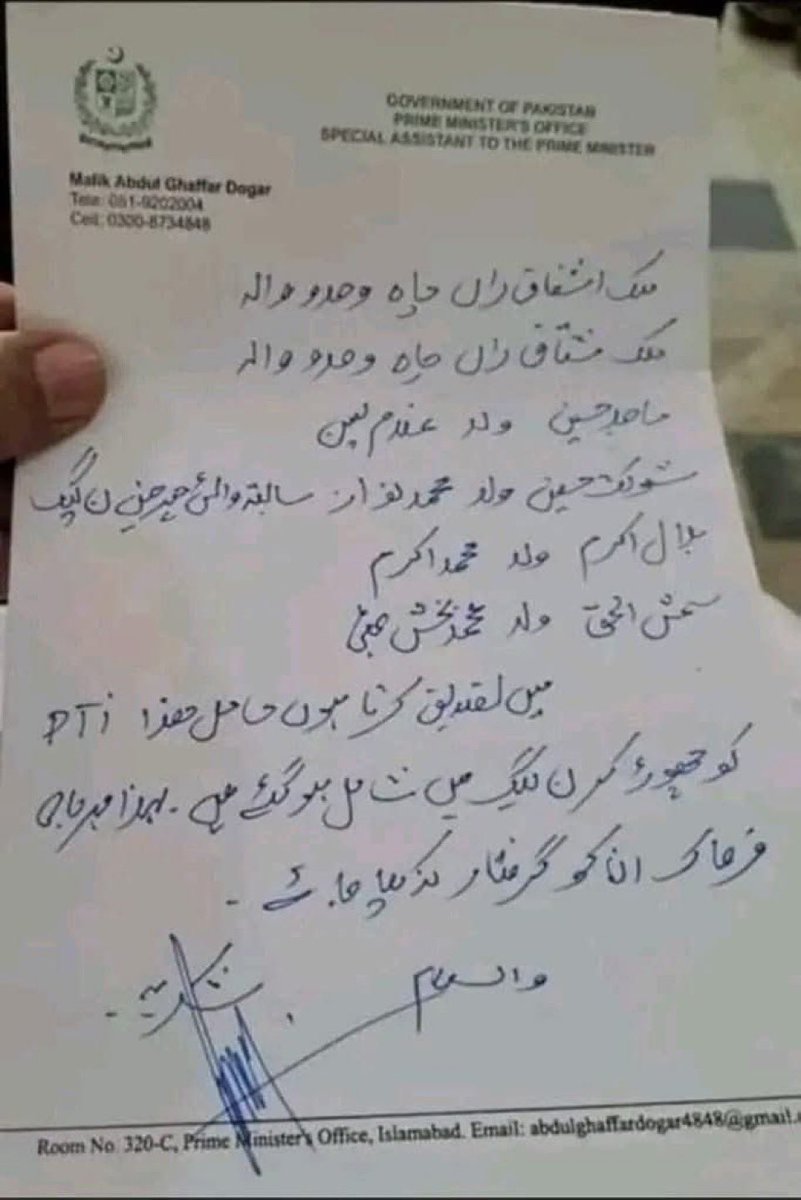 GOVERNMENT OF PAKISTAN
PRIME MINISTER'S OFFICE
SPECIAL ASSISTANT TO THE PRIME MINISTER
Malik Abdul Ghaffar Dogar
Tele: 051-9202004
Cell: 0300-8734848
ملک اشفاق راں چاہ وحدو والہ
ملک مشتاق راں چاہ وحدو والہ
ماجد حسین ولد غلام یسین
شوکت حسین ولد محمد نواز سابقہ وائس چیرمین ن لیگ
بلال اکرم ولد محمد اکرم
شمس الحق ولد محمد بخش
میں تصدیق کرتا ہوں حامل ھذا PTi
کو چھوڑ کر ن لیگ میں شامل ہو گئے ہیں۔ لہذا مہربانی
فرما کر ان کو گرفتار نہ کیا جائے۔
والسلام
شکریہ۔
Room No. 320-C, Prime Minister's Office, Islamabad. Email: abdulghaffardogar4848@gmail.